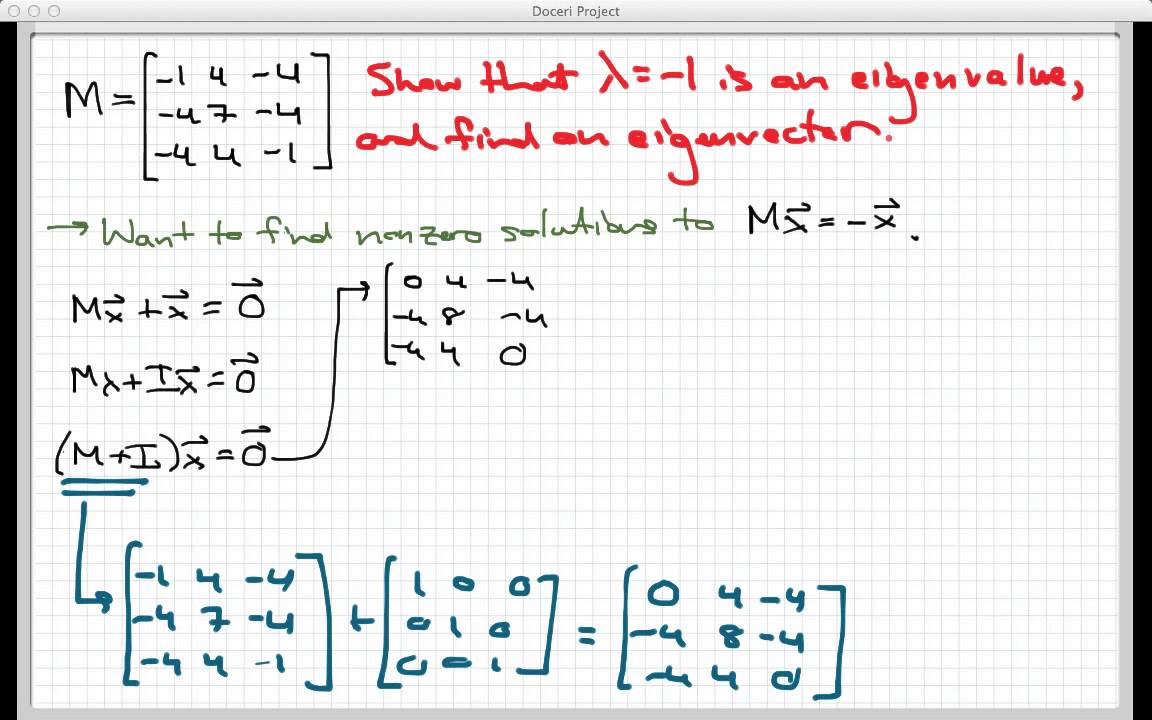 Doceri Project
M = [ -1 4 -4
-4 7 -4
-4 4 -1 ]
Show that λ = -1 is an eigenvalue,
and find an eigenvector.
→ Want to find nonzero solutions to Mx⃗ = -x⃗.
Mx⃗ + x⃗ = 0⃗
Mx + Ix⃗ = 0⃗
(M + I)x⃗ = 0⃗
[ 0 4 -4
-4 8 -4
-4 4 0
[ -1 4 -4
-4 7 -4
-4 4 -1 ]
+
[ 1 0 0
0 1 0
0 0 1 ]
=
[ 0 4 -4
-4 8 -4
-4 4 0 ]